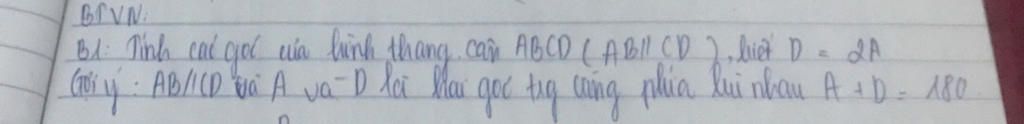 BTVN:
B1: Tính các góc của hình thang cân ABCD (AB // CD), biết D = 2A
Gợi ý: AB//CD và A và D là hai góc trg cùng phía bù nhau A + D = 180